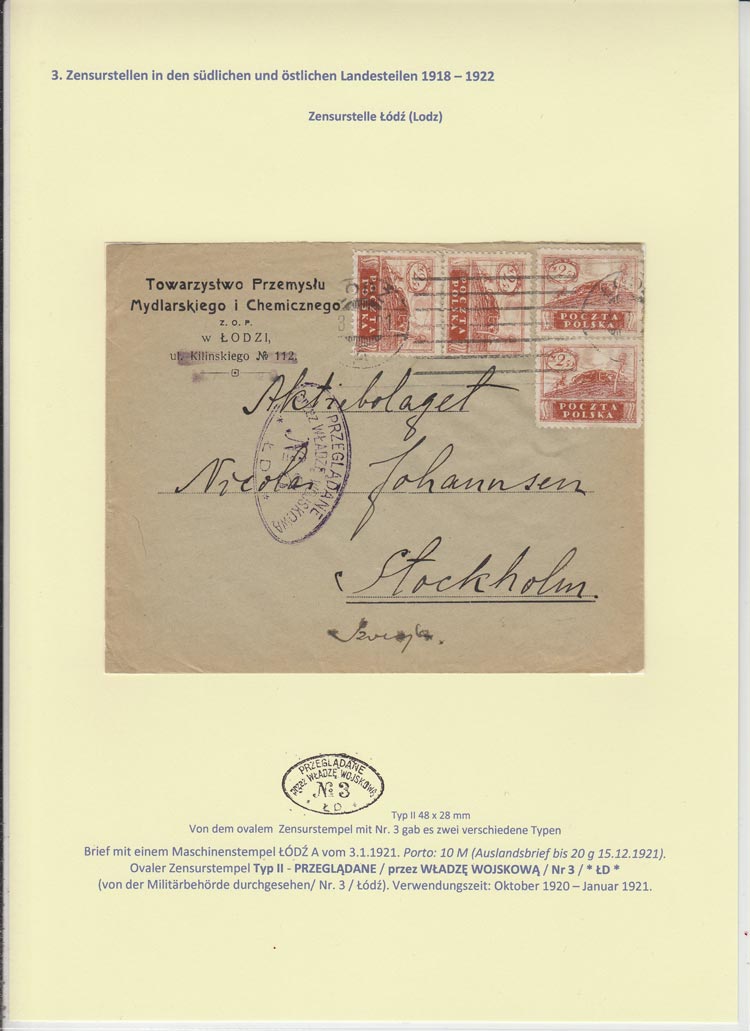 3. Zensurstellen in den südlichen und östlichen Landesteilen 1918 – 1922
Zensurstelle Łódź (Lodz)
Towarzystwo Przemysłu
Mydlarskiego i Chemicznego
Z. O. P.
w ŁODZI,
ul. Kilińskiego № 112.
POCZTA
POLSKA
POCZTA
POLSKA
POCZTA
POLSKA
POCZTA
POLSKA
Aktiebolaget
Nicolai Johannsen
Stockholm.
PRZEGLĄDANE
przez WŁADZĘ WOJSKOWĄ
№ 3
* Ł D *
PRZEGLĄDANE
przez WŁADZĘ WOJSKOWĄ
№ 3
* Ł D *
Typ II 48 x 28 mm
Von dem ovalem Zensurstempel mit Nr. 3 gab es zwei verschiedene Typen
Brief mit einem Maschinenstempel ŁÓDŹ A vom 3.1.1921. Porto: 10 M (Auslandsbrief bis 20 g 15.12.1921).
Ovaler Zensurstempel Typ II - PRZEGLĄDANE / przez WŁADZĘ WOJSKOWĄ / Nr 3 / * ŁD *
(von der Militärbehörde durchgesehen/ Nr. 3 / Łódź). Verwendungszeit: Oktober 1920 – Januar 1921.